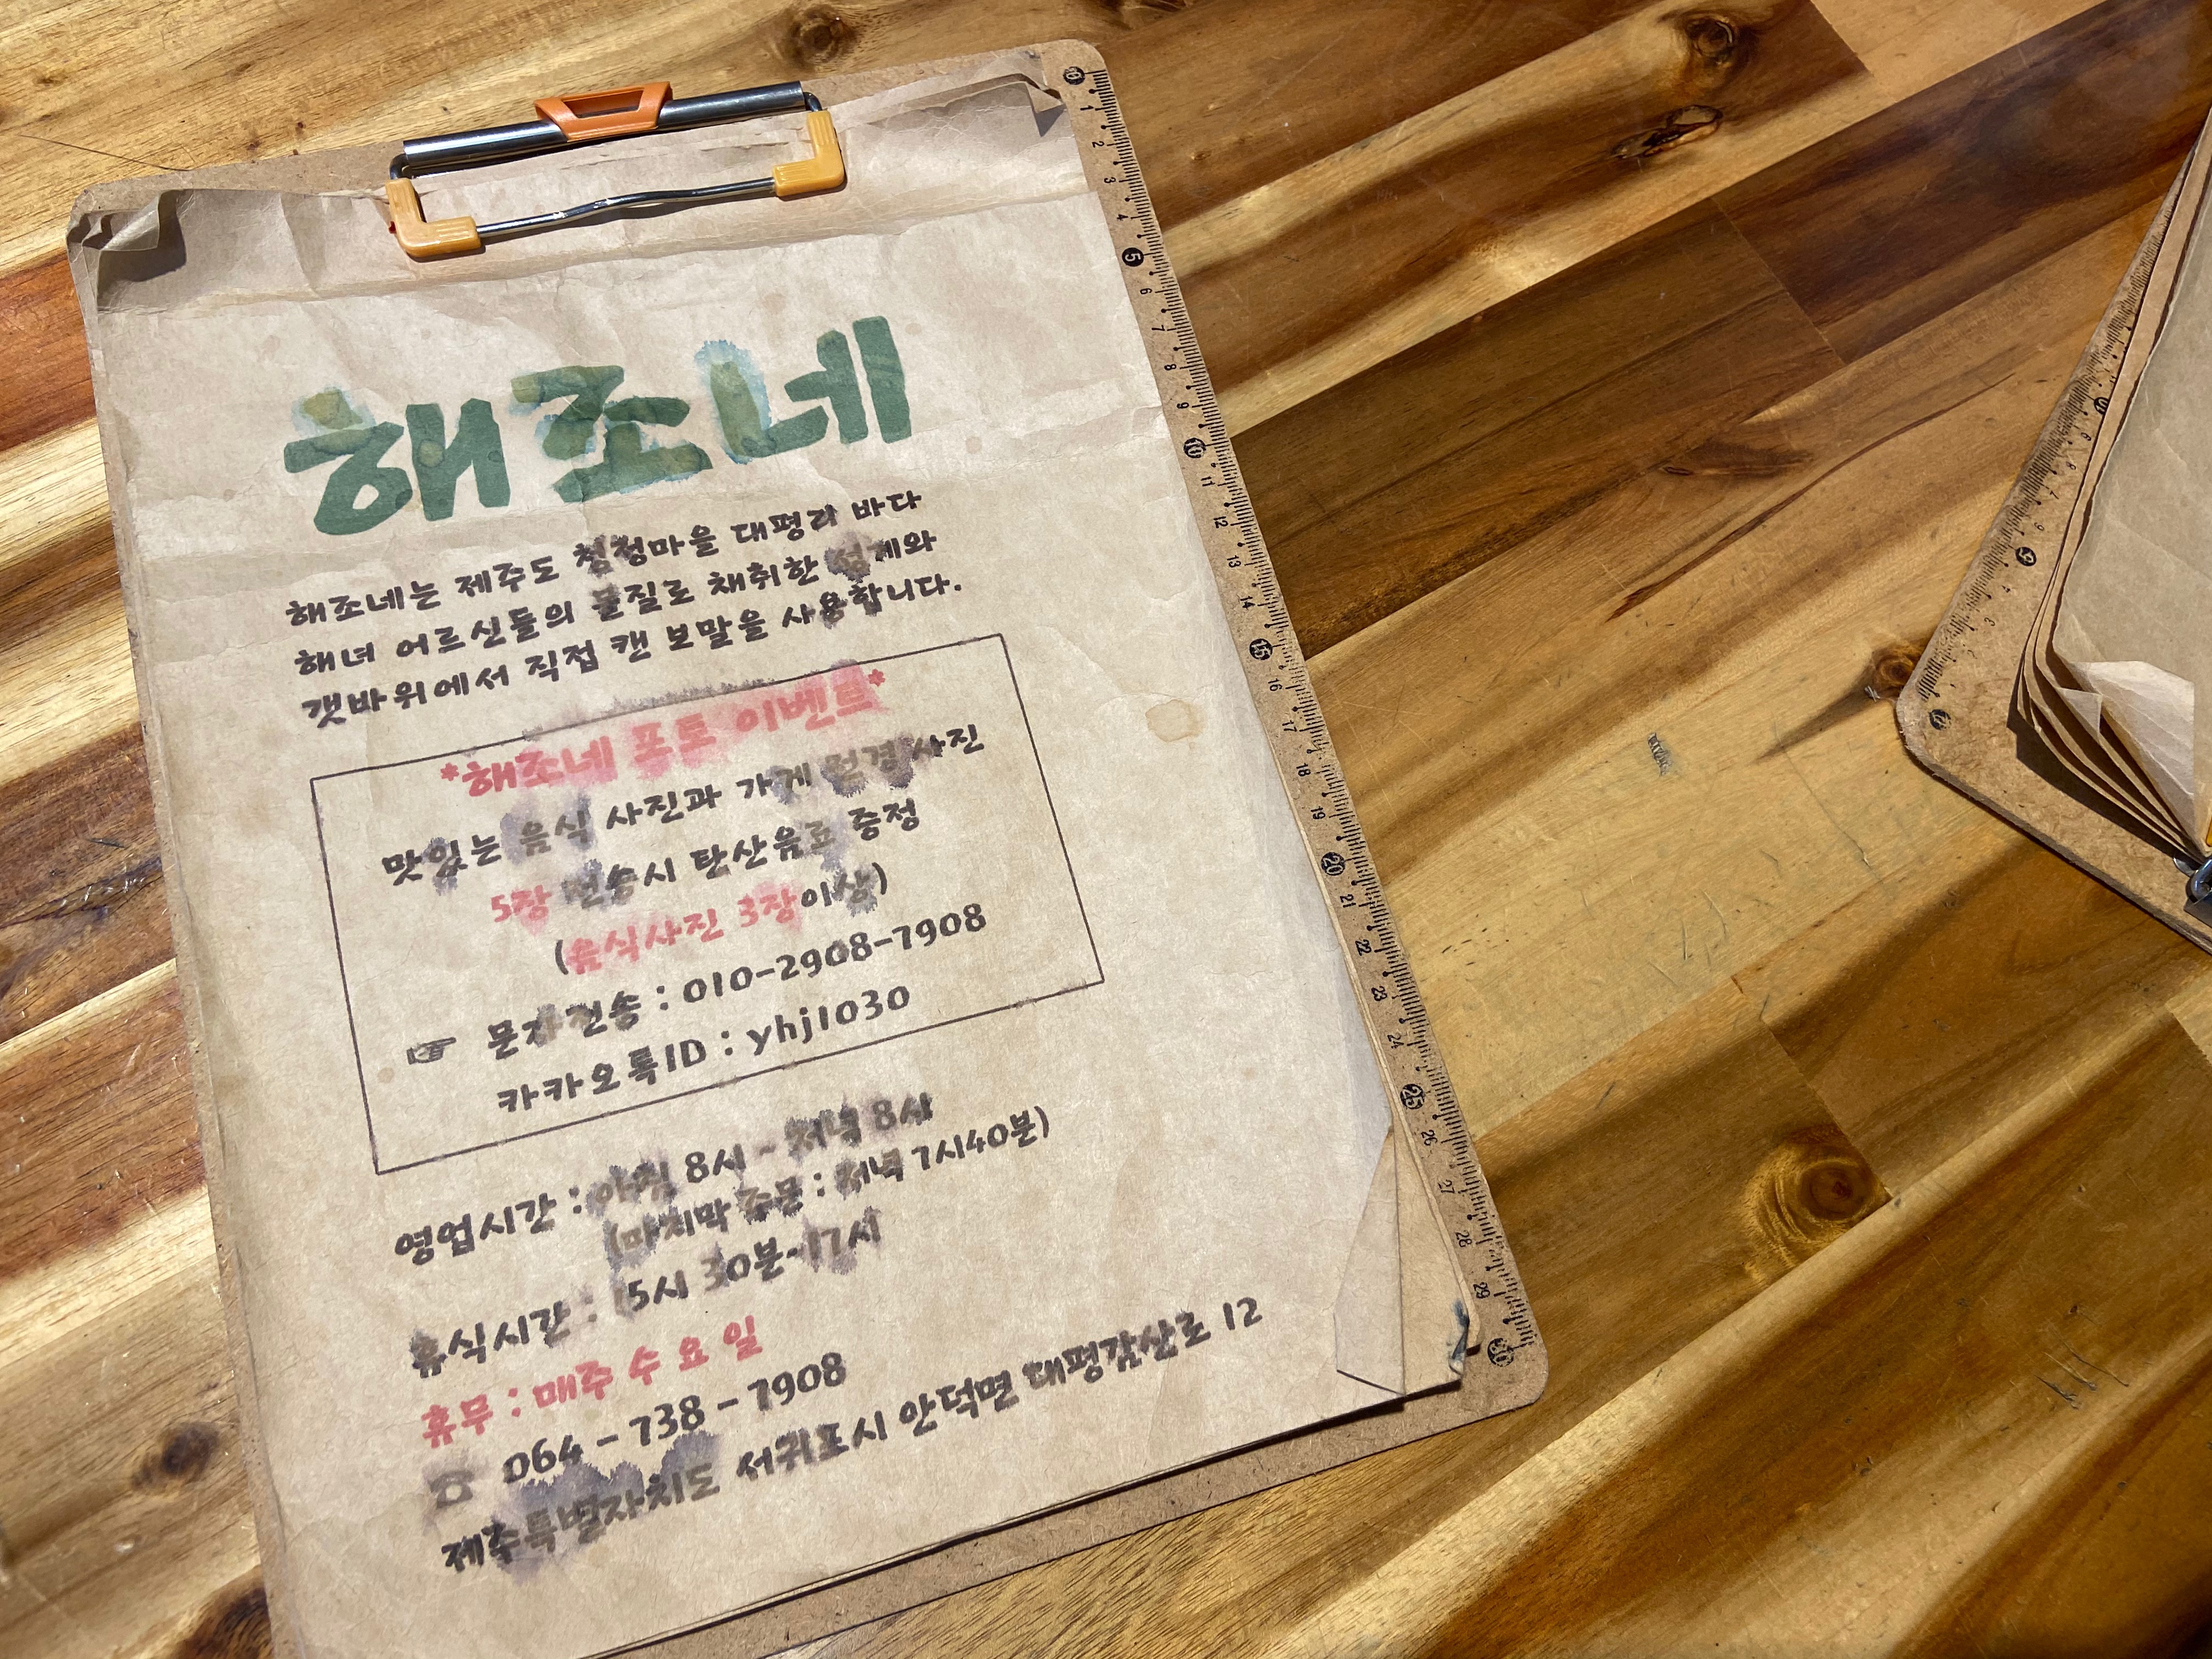 해조네
해조네는 제주도 청정마을 대평리 바다
해녀 어르신들의 물질로 채취한 성게와
갯바위에서 직접 캔 보말을 사용합니다.
*해조네 포토 이벤트*
맛있는 음식 사진과 가게 전경 사진
5장 전송시 탄산음료 증정
(음식사진 3장이상)
☞ 문자전송 : 010-2908-7908
카카오톡ID : yhj1030
영업시간 : 아침 8시 - 저녁 8시
(마지막 주문 : 저녁 7시40분)
휴식시간 : 15시 30분-17시
휴무 : 매주 수요일
☎ 064 - 738 - 7908
제주특별자치도 서귀포시 안덕면 대평감산로 12
0 1 2 3 4 5 6 7 8 9 10 11 12 13 14 15 16 17 18 19 20 21 22 23 24 25 26 27 28 29 30